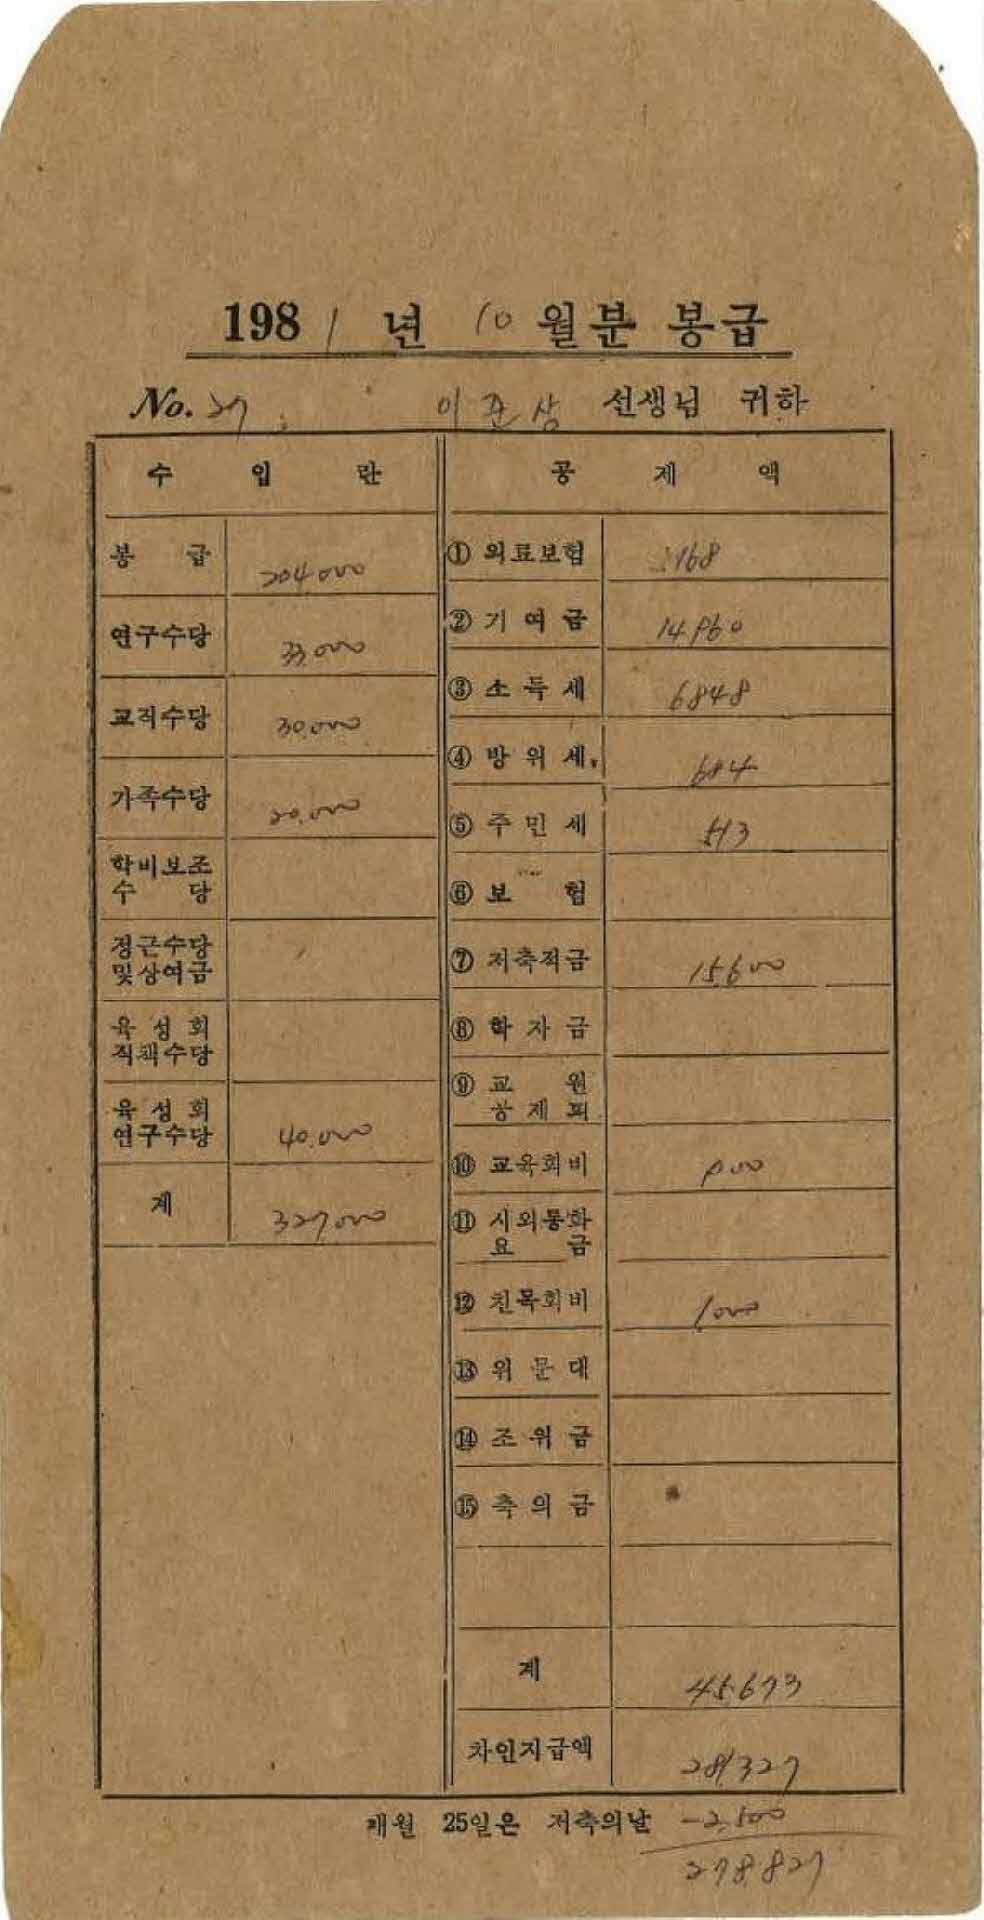 1981년 10월분 봉급
No. 27 이준상 선생님 귀하
수 입 란
봉 급 204,000
연구수당 33,000
교직수당 30,000
가족수당 20,000
학비보조
수 당
정근수당
및상여금
육성회
직책수당
육성회
연구수당 40,000
계 327,000
공 제 액
① 의료보험 5168
② 기여금 14960
③ 소득세 6848
④ 방위세 684
⑤ 주민세 513
⑥ 보 험
⑦ 저축적금 15,600
⑧ 학자금
⑨ 교 원
공제회
⑩ 교육회비 900
⑪ 시외통화
요 금
⑫ 친목회비 1,000
⑬ 위문대
⑭ 조위금
⑮ 축의금
계 45,673
차인지급액 281327
매월 25일은 저축의날 -2,500
278,827